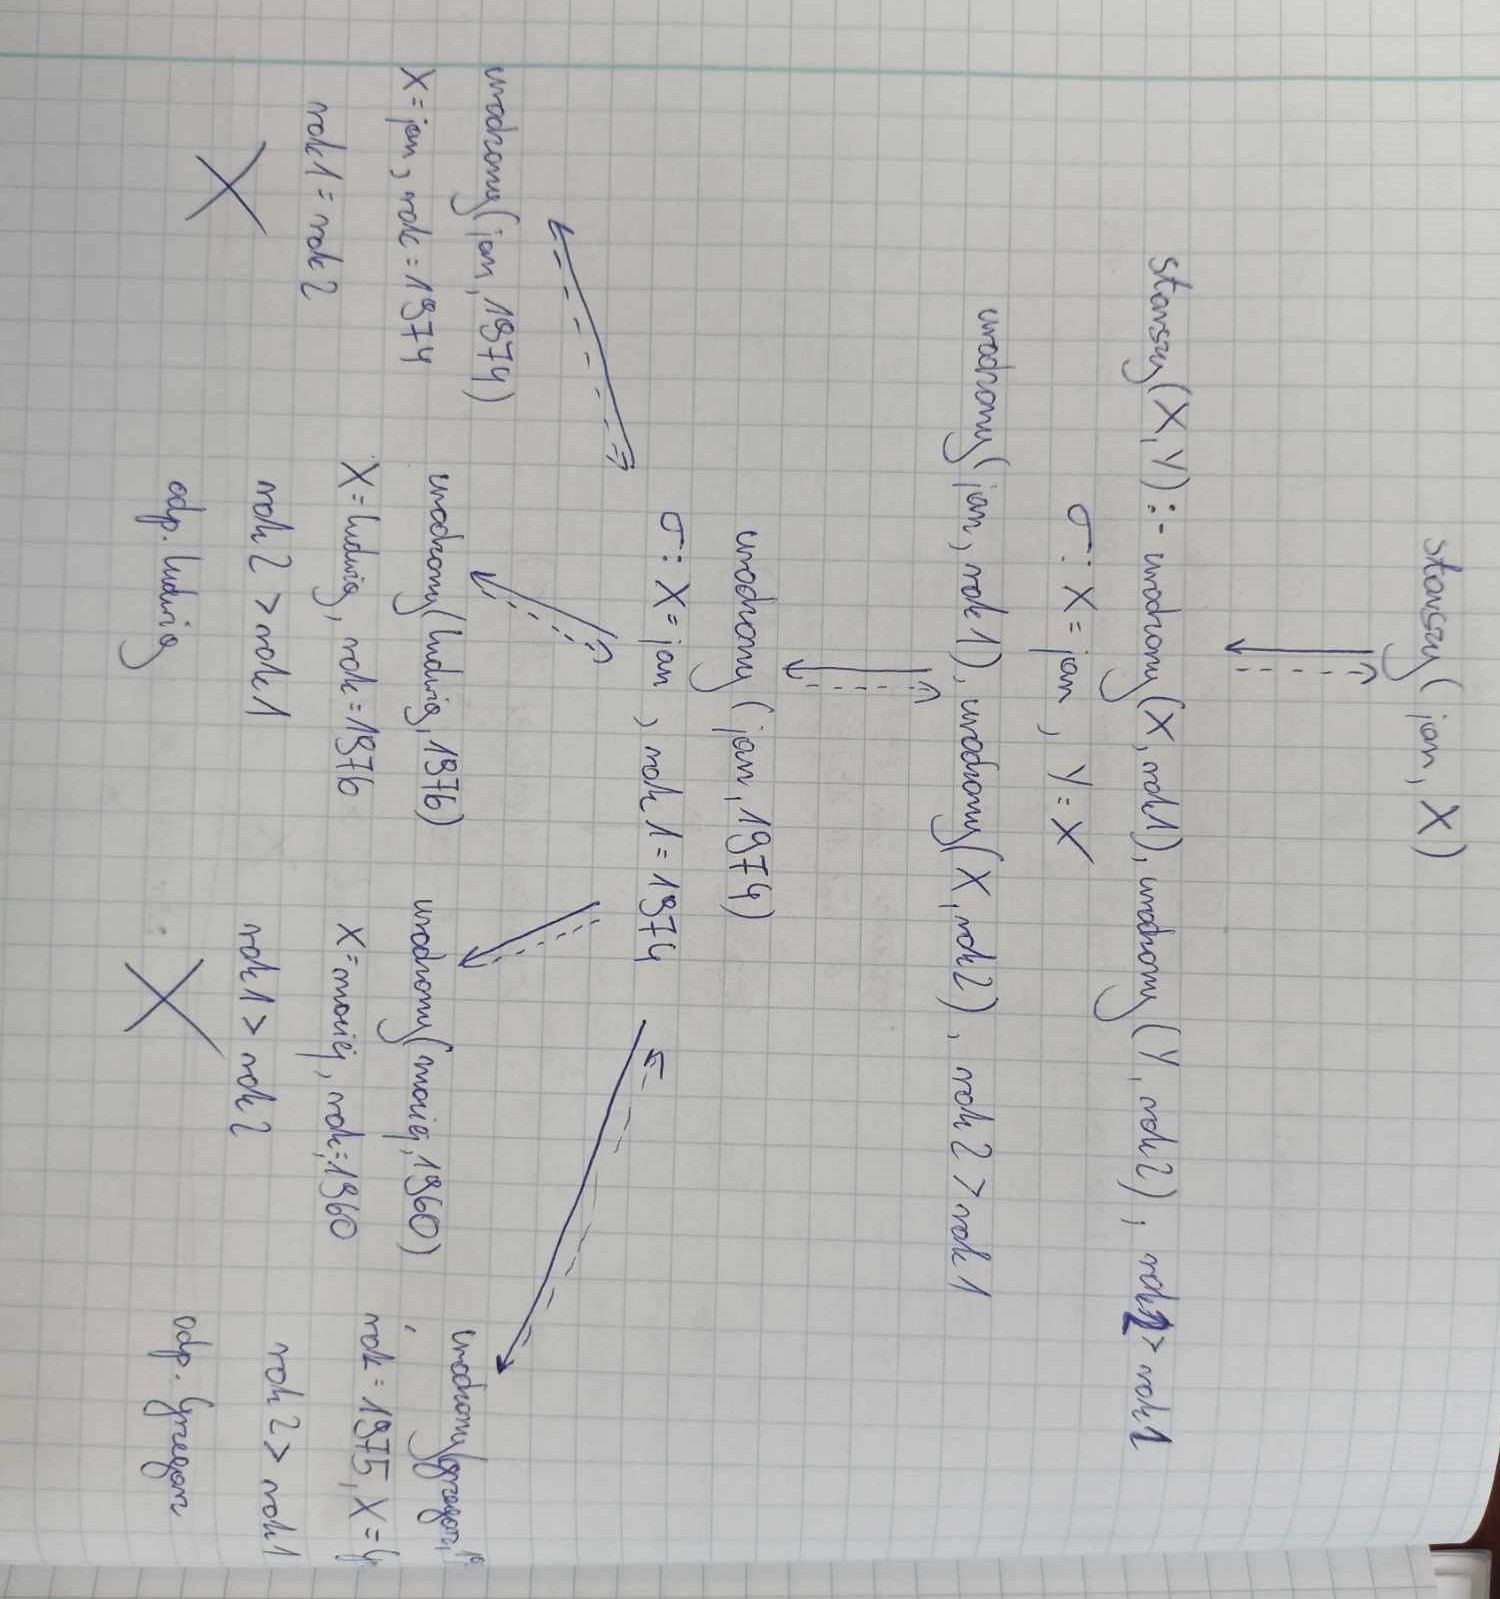 starszy(jan, X)
starszy(X,Y):- urodzony(X, rok1), urodzony(Y, rok2), rok2 > rok1
σ: X = jan, Y = X
urodzony(jan, rok1), urodzony(X, rok2), rok2 > rok1
urodzony(jan, 1974)
σ: X = jan, rok1 = 1974
urodzony(jan, 1974)
X = jan, rok = 1974
rok1 = rok2
X
urodzony(ludwig, 1976)
X = ludwig, rok = 1976
rok2 > rok1
odp. ludwig
urodzony(maciej, 1960)
X = maciej, rok = 1960
rok1 > rok2
X
urodzony(grzegorz, 19
, rok = 1975, X =
rok2 > rok1
odp. Grzegorz